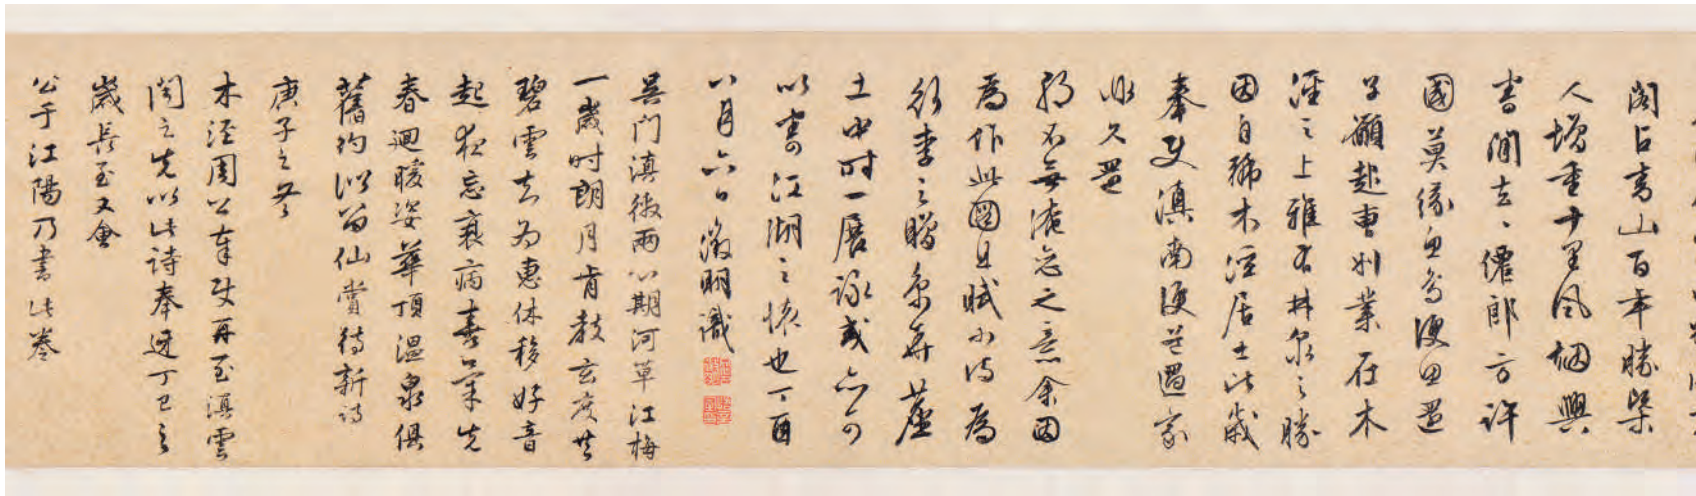 閣占青山百年勝
人增重千里風烟興
書閒去、僊郎方許
國莫緣魚鳥便思還
子顓起東別業在木
涇之上雅有林泉之勝
因自號木涇居士比歲
奉使滇南便道還家
非久還
朝不無淹戀之意余因
為作此圖且賦小詩為
行李之贈原再莅
土中時一展詠或亦可
以寄江湖之懷也丁酉
八月六日徵明識
吳門滇徼兩心期河草江梅
一歲時朗月肯教玄度共
碧雲去為惠休移好音
起我忘衰病喜氣先
春迴暖姿華頂溫泉俱
舊約從留仙賞待新詩
庚子之冬
木涇周公奉使再至滇雲
聞之先以此詩奉迓丁巳之
歲長至又會
公于江陽乃書此卷